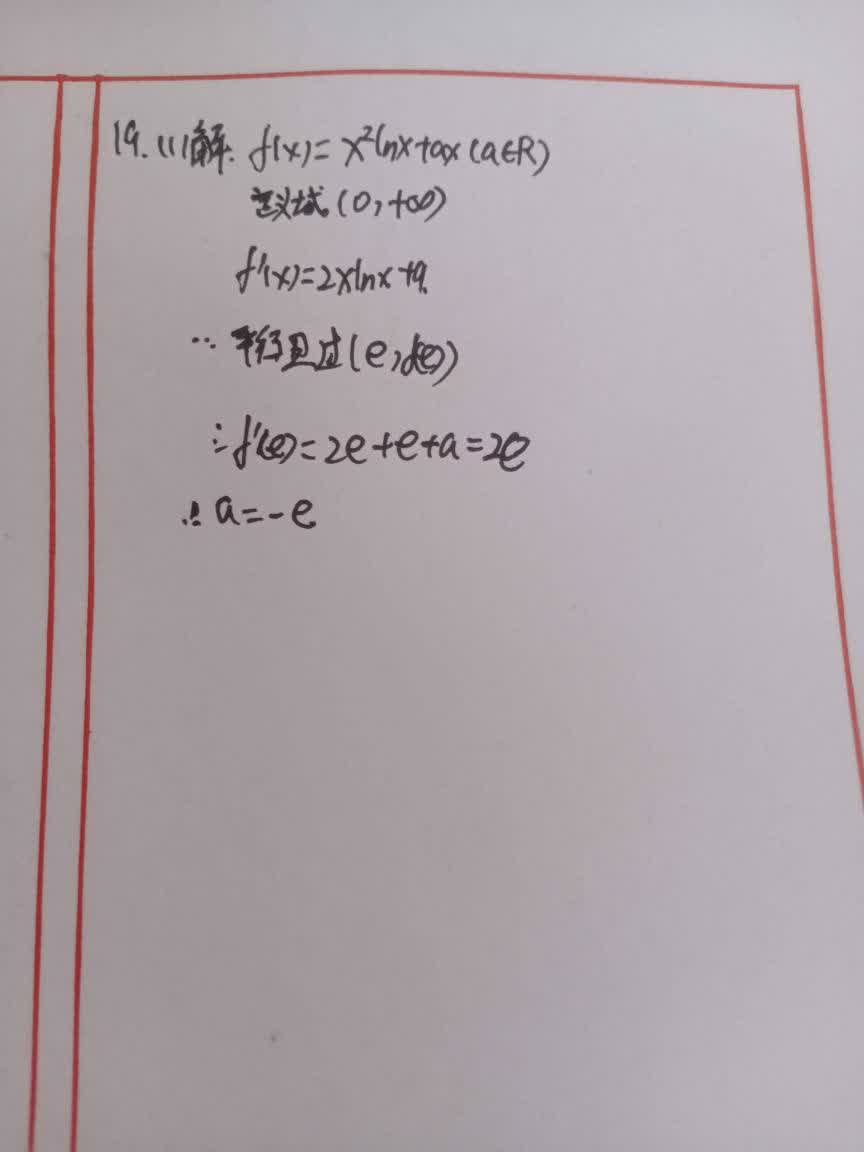 19. (1) 解. f(x)=x²lnx+ax(a∈R)
定义域(0,+∞)
f'(x)=2xlnx+a.
∵ 平行且过(e,f(e))
∴f'(e)=2e+e+a=2e
∴a=-e